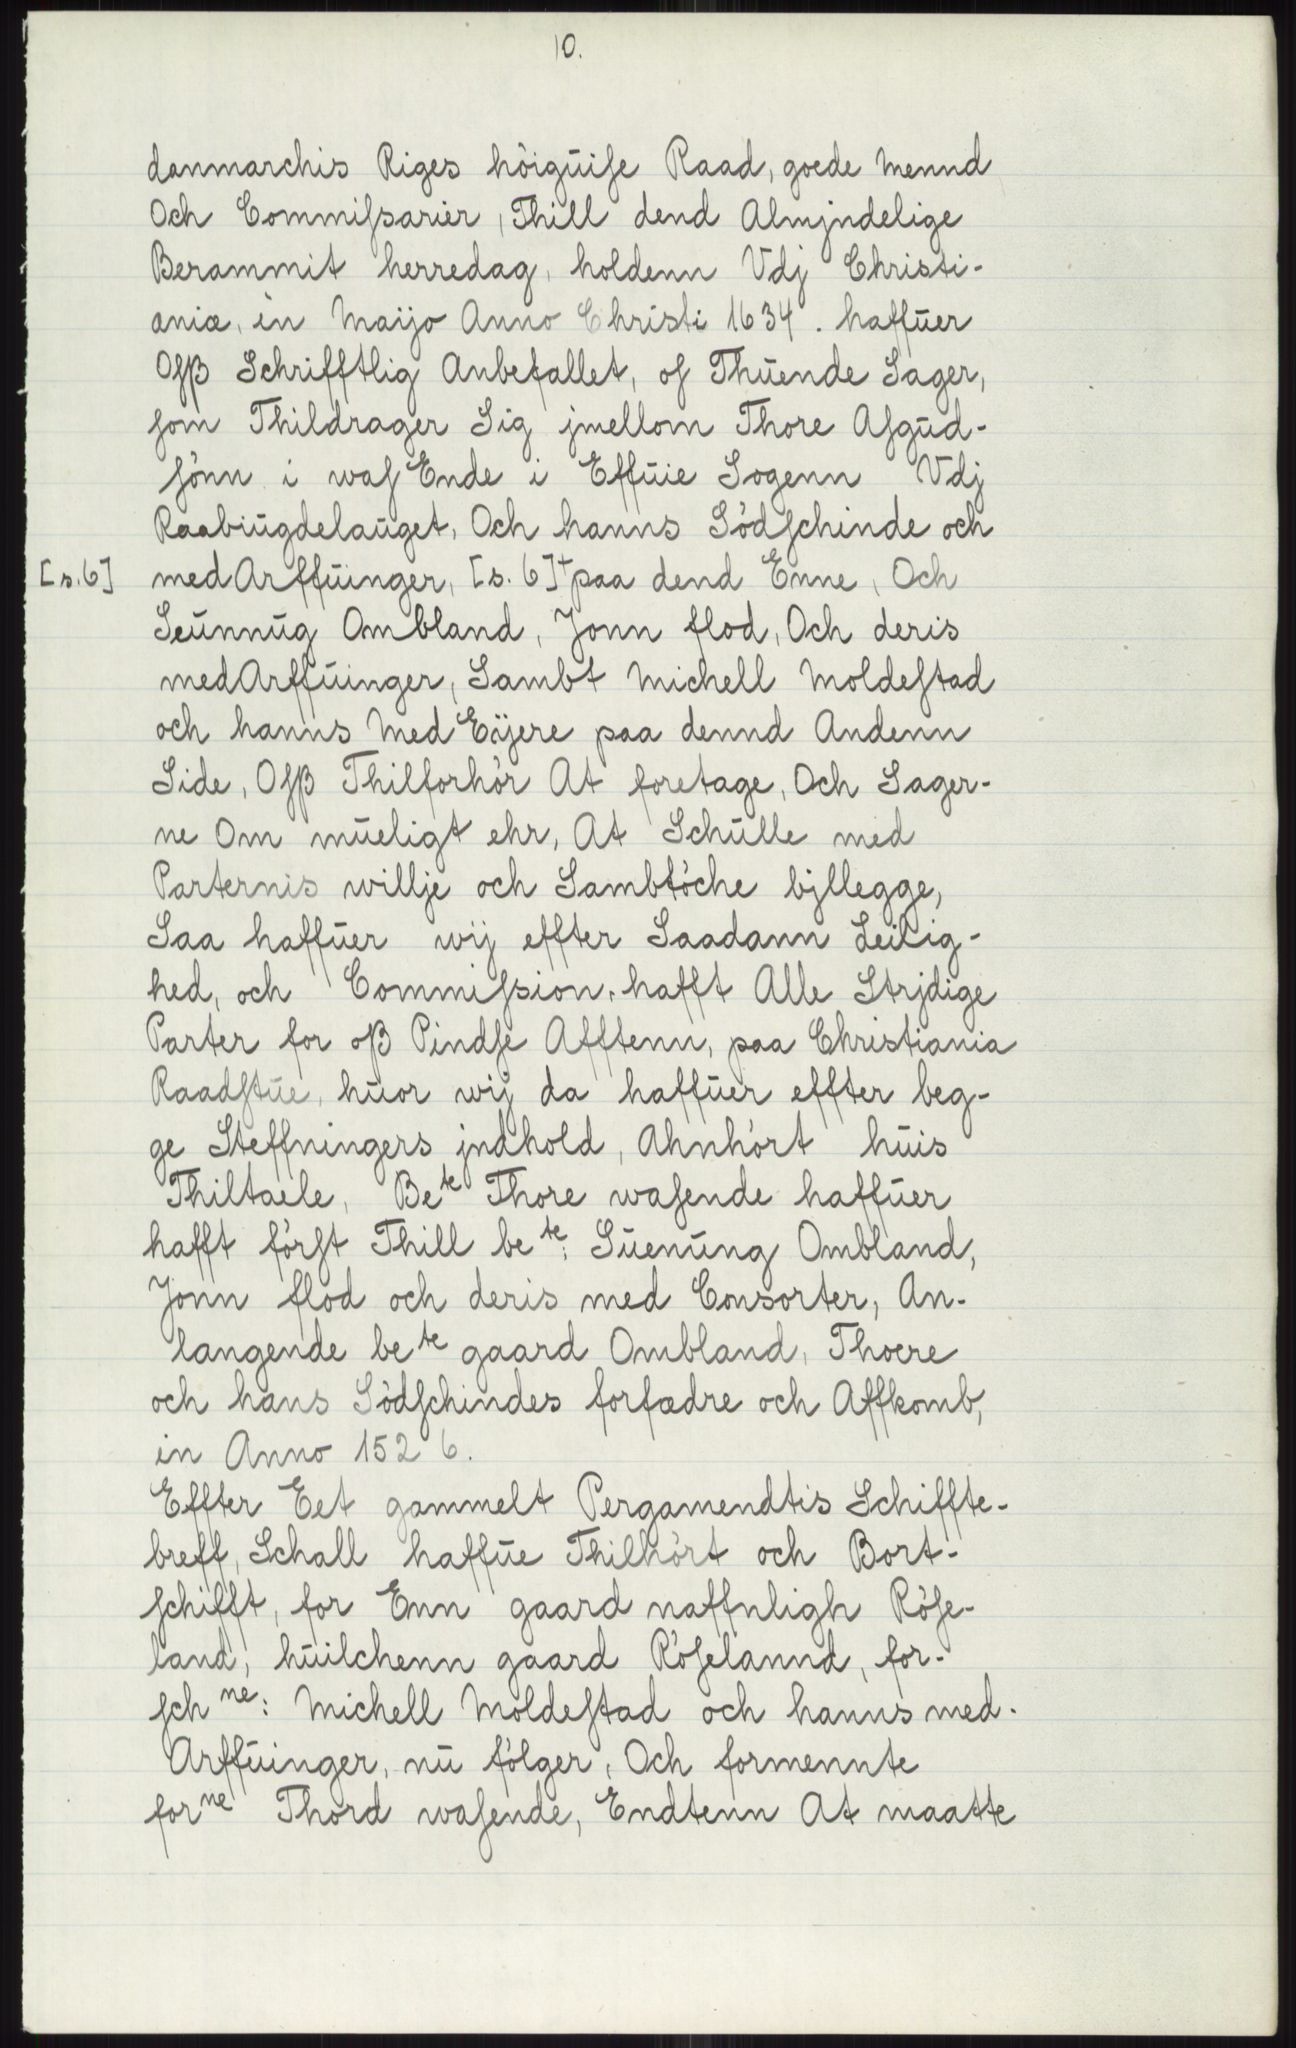 10.
danmarchis Riges höigŭiſe Raad, goede Mennd
Och Commiſsarier, Thill dend Almjndelige
Berammit herredag, holdenn Vdj Christi-
aniæ, in Maijo Anno Christi 1634. haffŭer
Oſß Schrifftlig Anbefallet, oſ Thŭende Sager,
ſom Thildrager Sig jmellom Thore Aſgŭd-
ſönn i waſ Ende i Effŭie Sogenn Vdj
Raabiŭgdelaŭget, Och hanns Södſchinde och
[s.6] med Arffŭinger, [s.6]+ paa dend Enne, Och
Seŭnnŭg Ombland, Jonn flod, Och deris
med Arffŭinger, Sambt Michell Moldeſtad
och hanns Med Eÿere paa dennd Andenn
Side, Oſß Thilforhör At foretage, Och Sager-
ne Om mŭeligt ehr, At Schŭlle med
Parternis willje och Sambtöche bjllegge,
Saa haffŭer wij effter Saadann Leilig-
hed, och Commiſsion, hafft Alle Strjdige
Parter for oß Pindſe Afftenn, paa Christiania
Raadſtŭe, hŭor wij da haffŭer effter beg-
ge Steffningers jndhold, Ahnhört hŭis
Thiltaele, Be te Thore waſende haffŭer
hafft förſt Thill be te: Sŭenŭng Ombland,
Jonn flod och deris med Consorter, An-
langende be te gaard Ombland, Thoere
och hans Södſchindes forfædre och Affkomb,
in Anno 1526.
Effter Eet gammelt Pergamendtis Schiffte-
breff, Schall haffŭe Thilhört och Bort-
ſchifft, for Enn gaard naffnligh Röſe-
land, hŭilchenn gaard Röſelannd, for-
ſch ne: Michell Moldeſtad och hanns med-
Arffŭinger, nŭ fölger, Och formennte
for ne Thord waſende, Endtenn At maatte